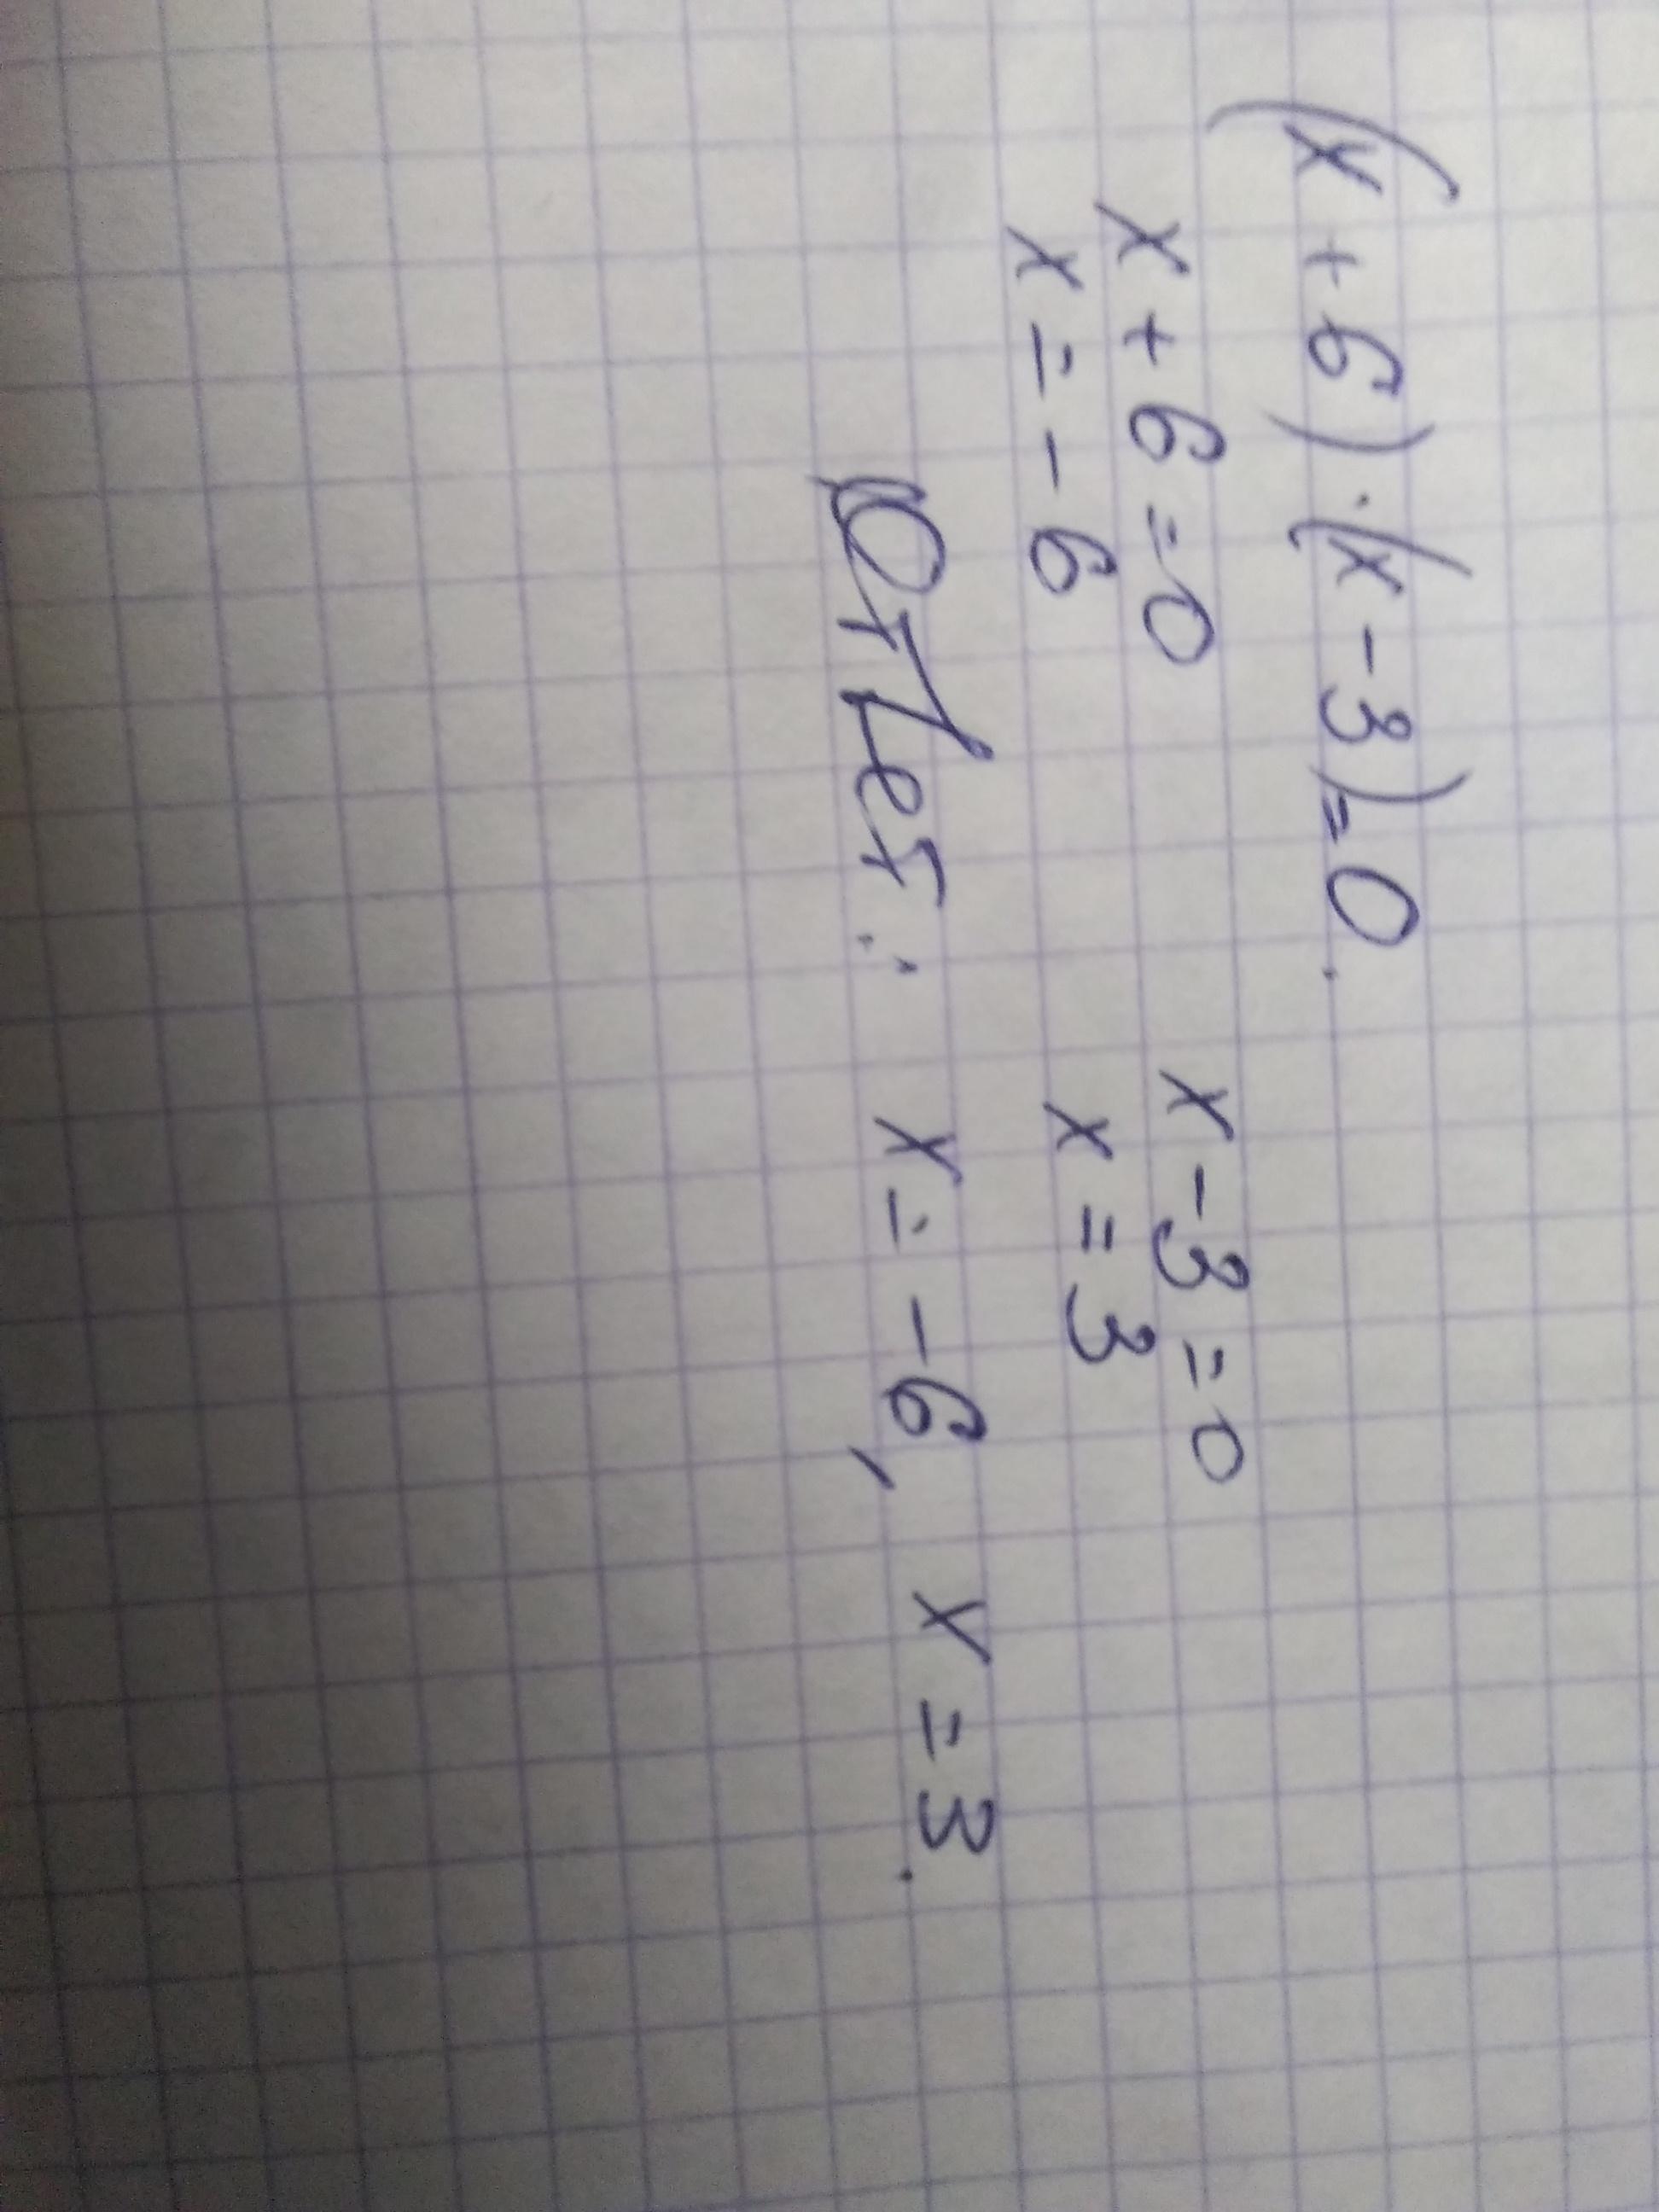 (x + 6) · (x - 3) = 0.
x + 6 = 0 x - 3 = 0
x = - 6 x = 3
Ответ: x = - 6, x = 3.